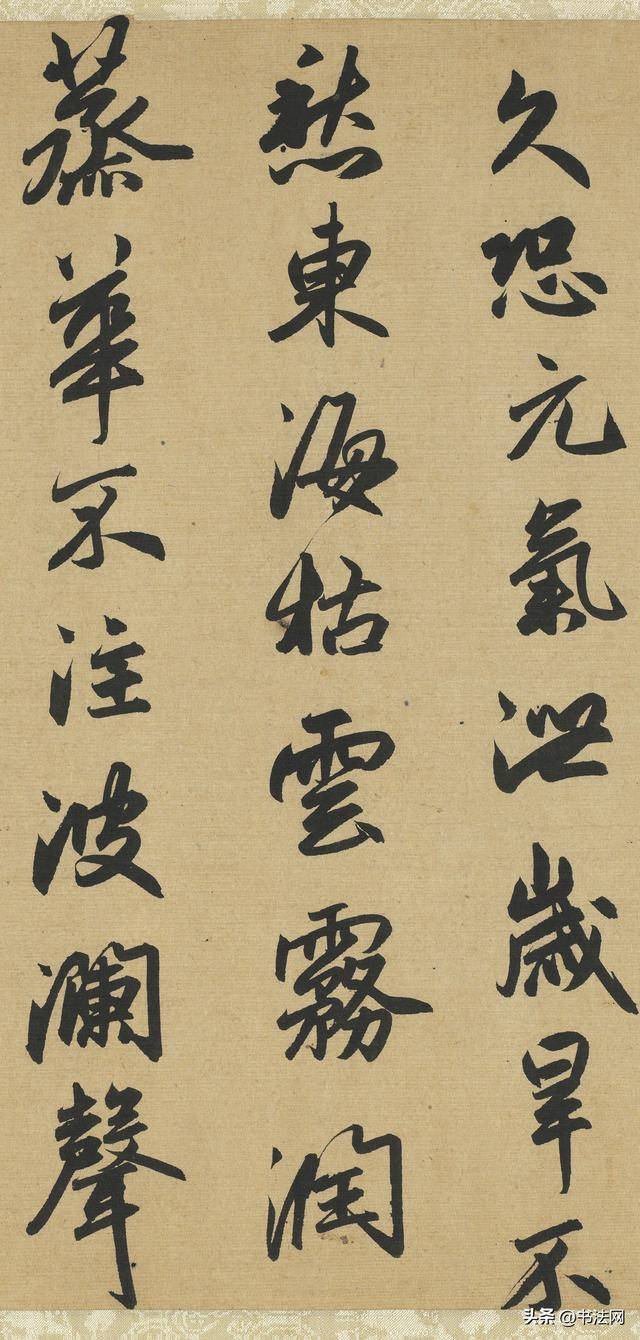 久恐元氣泄歲旱不
愁東海枯雲霧潤
蒸華不注波瀾聲
头条 @书法网